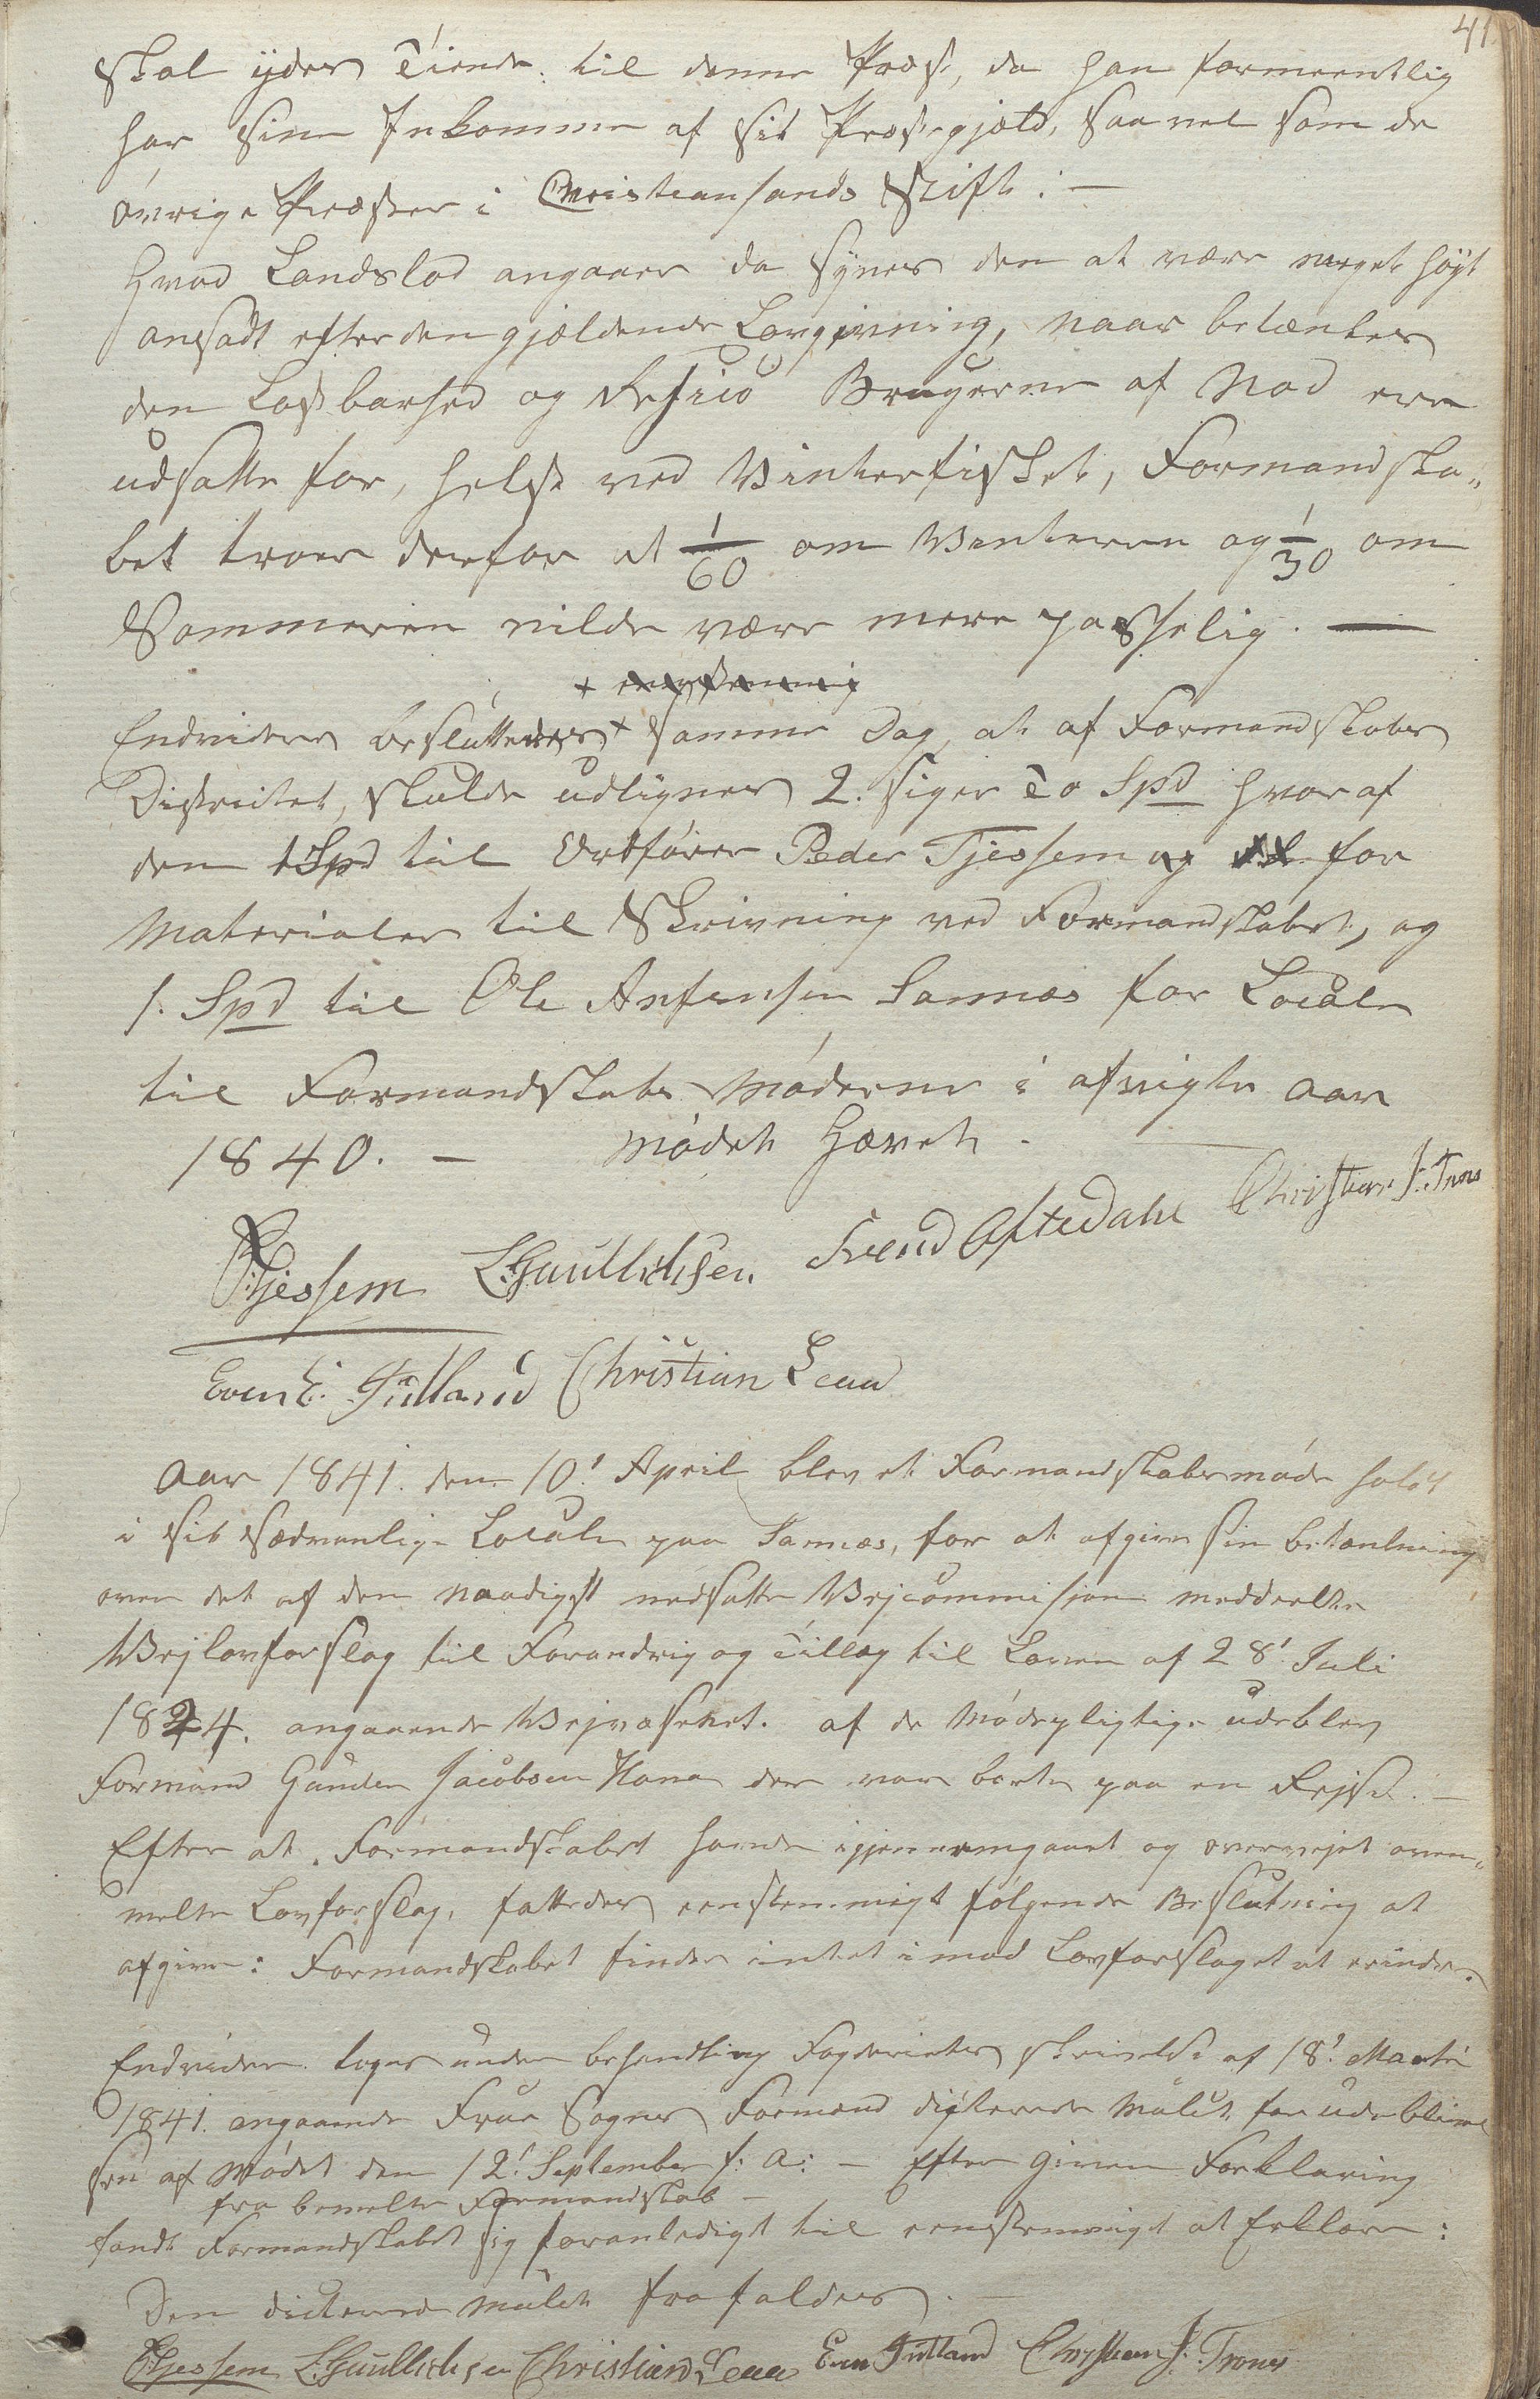 41
skal ydes Tiende til denne Præst, da han formeentlig
har sine Inkomme af sit Præstegjæld, saavel som de
øvrige Præster i Christiansands Stift. —
Hvad Landslod angaaer da synes den at være meget høyt
ansadt efter den gjældende Lovgivning, naar betænkes
den Kostbarhed og Resico Brugerne af Nod ere
udsatte for, helst ved Vinterfisket, Formandska„
bet troer derfor at 1/60 om Venteren og 1/30 om
Sommeren vilde være mere passelig. —
Endvidere besluttedes + samme Dag, at af Formandskabs
Districtet, skulde udlignes 2. siger To Spd hvoraf
den 1 Spd til Ordfører Peder Tjessem og for
Materialer til Skrivning ved Formandskabet, og
1. Spd til Ole Anfensen Sannes for Locale
til Formandskabs Møderne i afvigte Aar
1840. — Mødet Hævet.
PTjessem L. Gunllichsen Svend Aftedahl Christian J. Trones
Even E. Jutland Christian Leua
Aar 1841. den 10! April blev et Formandskabsmøde holdt
i sit sædvanlige Locale paa Sannes, for at afgive sin betænkning
over det af den naadigst nedsatte Vejcommisjon meddeelte
Vejlovforslag til Forandrig og Tillæg til Loven af 28! Juli
1824. angaaende Vejvæsenet. af de Mødepligtige udeblev
Formand Gunder Jacobsen Hana der var borte paa en Rejse. —
Efter at Formandskabet havde igjennemgaaet og overvejet oven„
melte Lovforslag, fattedes eenstemmigt følgende Beslutning at
afgive: Formandskabet finder intet imod Lovforslaget at erindre.
Endvidere toges under behandling Fogderiets skrivelse af 18! Martii
1841. angaaende Frue Sogns Formænd digterede Mulct for udeblivel
sen af Mødet den 12! September f: A: — Efter given Forklaring
fra bemelte Formandskab —
fandt Formandskabet sig foranledigt til eenstemmigt at Erklære:
Den dicterede Mulct frafaldes.
PTjessem L. Gunllichsen Christian Leua Even Jutland Christian J. Trones